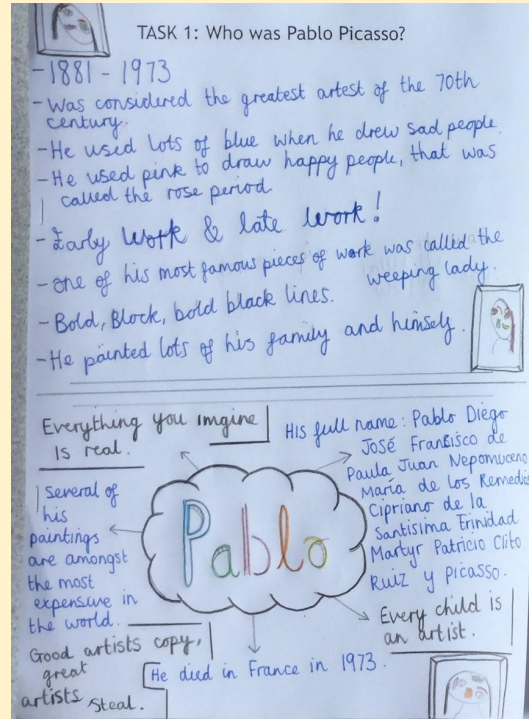 TASK 1: Who was Pablo Picasso?
-1881 - 1973
- Was considered the greatest artest of the 70th
century.
- He used lots of blue when he drew sad people.
- He used pink to draw happy people, that was
called the rose period
- Early work & late work!
- one of his most famous pieces of work was called the
weeping lady.
- Bold, Block, bold black lines.
- He painted lots of his family and himself.
Everything you imgine
is real.
His full name: Pablo Diego
José Francisco de
Paula Juan Nepomuceno
María de los Remedios
Cipriano de la
Santisima Trinidad
Martyr Patricio Clito
Ruiz y Picasso.
several of
his
paintings
are amongst
the most
expensive in
the world.
Pablo
Every child is
an artist.
Good artists copy,
great
artists steal.
He died in France in 1973.